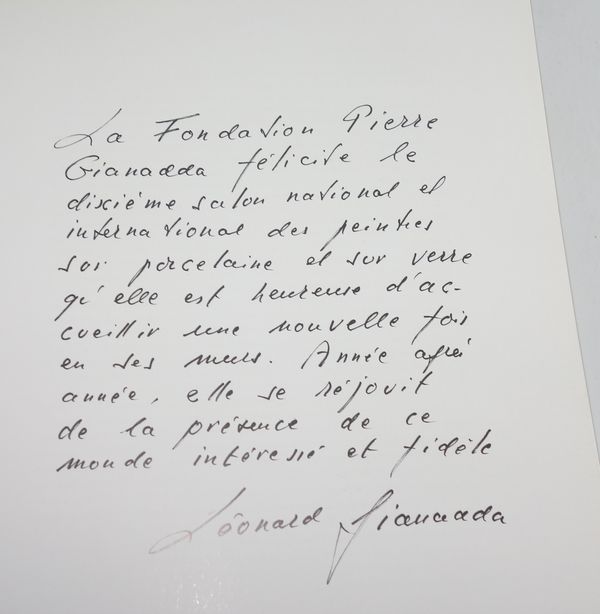 La Fondation Pierre
Gianadda félicite le
dixième salon national et
international des peintres
sur porcelaine et sur verre
qu'elle est heureuse d'ac-
cueillir une nouvelle fois
en ses murs. Année après
année, elle se réjouit
de la présence de ce
monde intéressé et fidèle
Léonard Gianadda